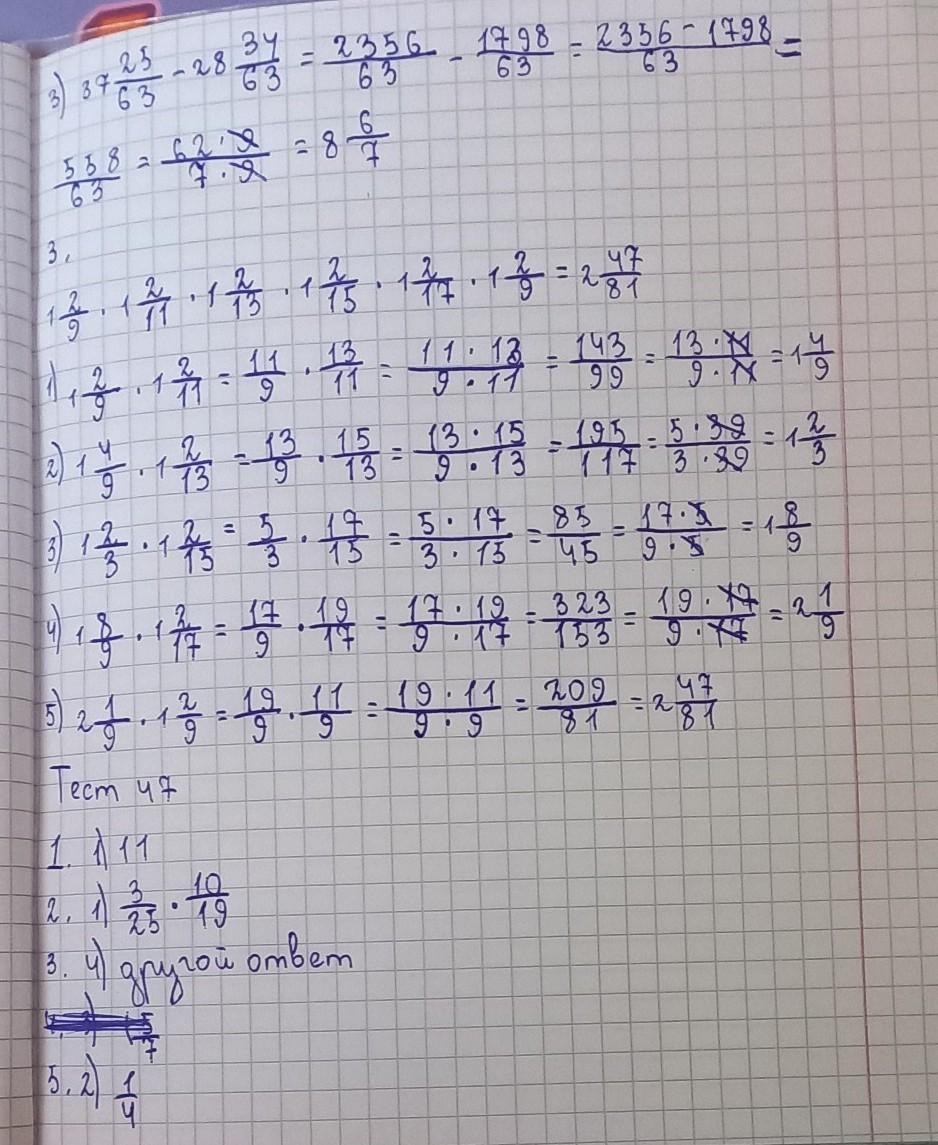 3) 37 25/63 - 28 34/63 = 2356/63 - 1798/63 = 2356-1798/63 =
558/63 = 62·9/7·9 = 8 6/7
3.
1 2/9 · 1 2/11 · 1 2/13 · 1 2/15 · 1 2/17 · 1 2/9 = 2 47/81
1) 1 2/9 · 1 2/11 = 11/9 · 13/11 = 11·13/9·11 = 143/99 = 13·11/9·11 = 1 4/9
2) 1 4/9 · 1 2/13 = 13/9 · 15/13 = 13·15/9·13 = 195/117 = 5·39/3·39 = 1 2/3
3) 1 2/3 · 1 2/15 = 5/3 · 17/15 = 5·17/3·15 = 85/45 = 17·5/9·5 = 1 8/9
4) 1 8/9 · 1 2/17 = 17/9 · 19/17 = 17·19/9·17 = 323/153 = 19·17/9·17 = 2 1/9
5) 2 1/9 · 1 2/9 = 19/9 · 11/9 = 19·11/9·9 = 209/81 = 2 47/81
Тест 47
1. 1) 11
2. 1) 3/25 · 10/19
3. 4) другой ответ
5. 2) 1/4